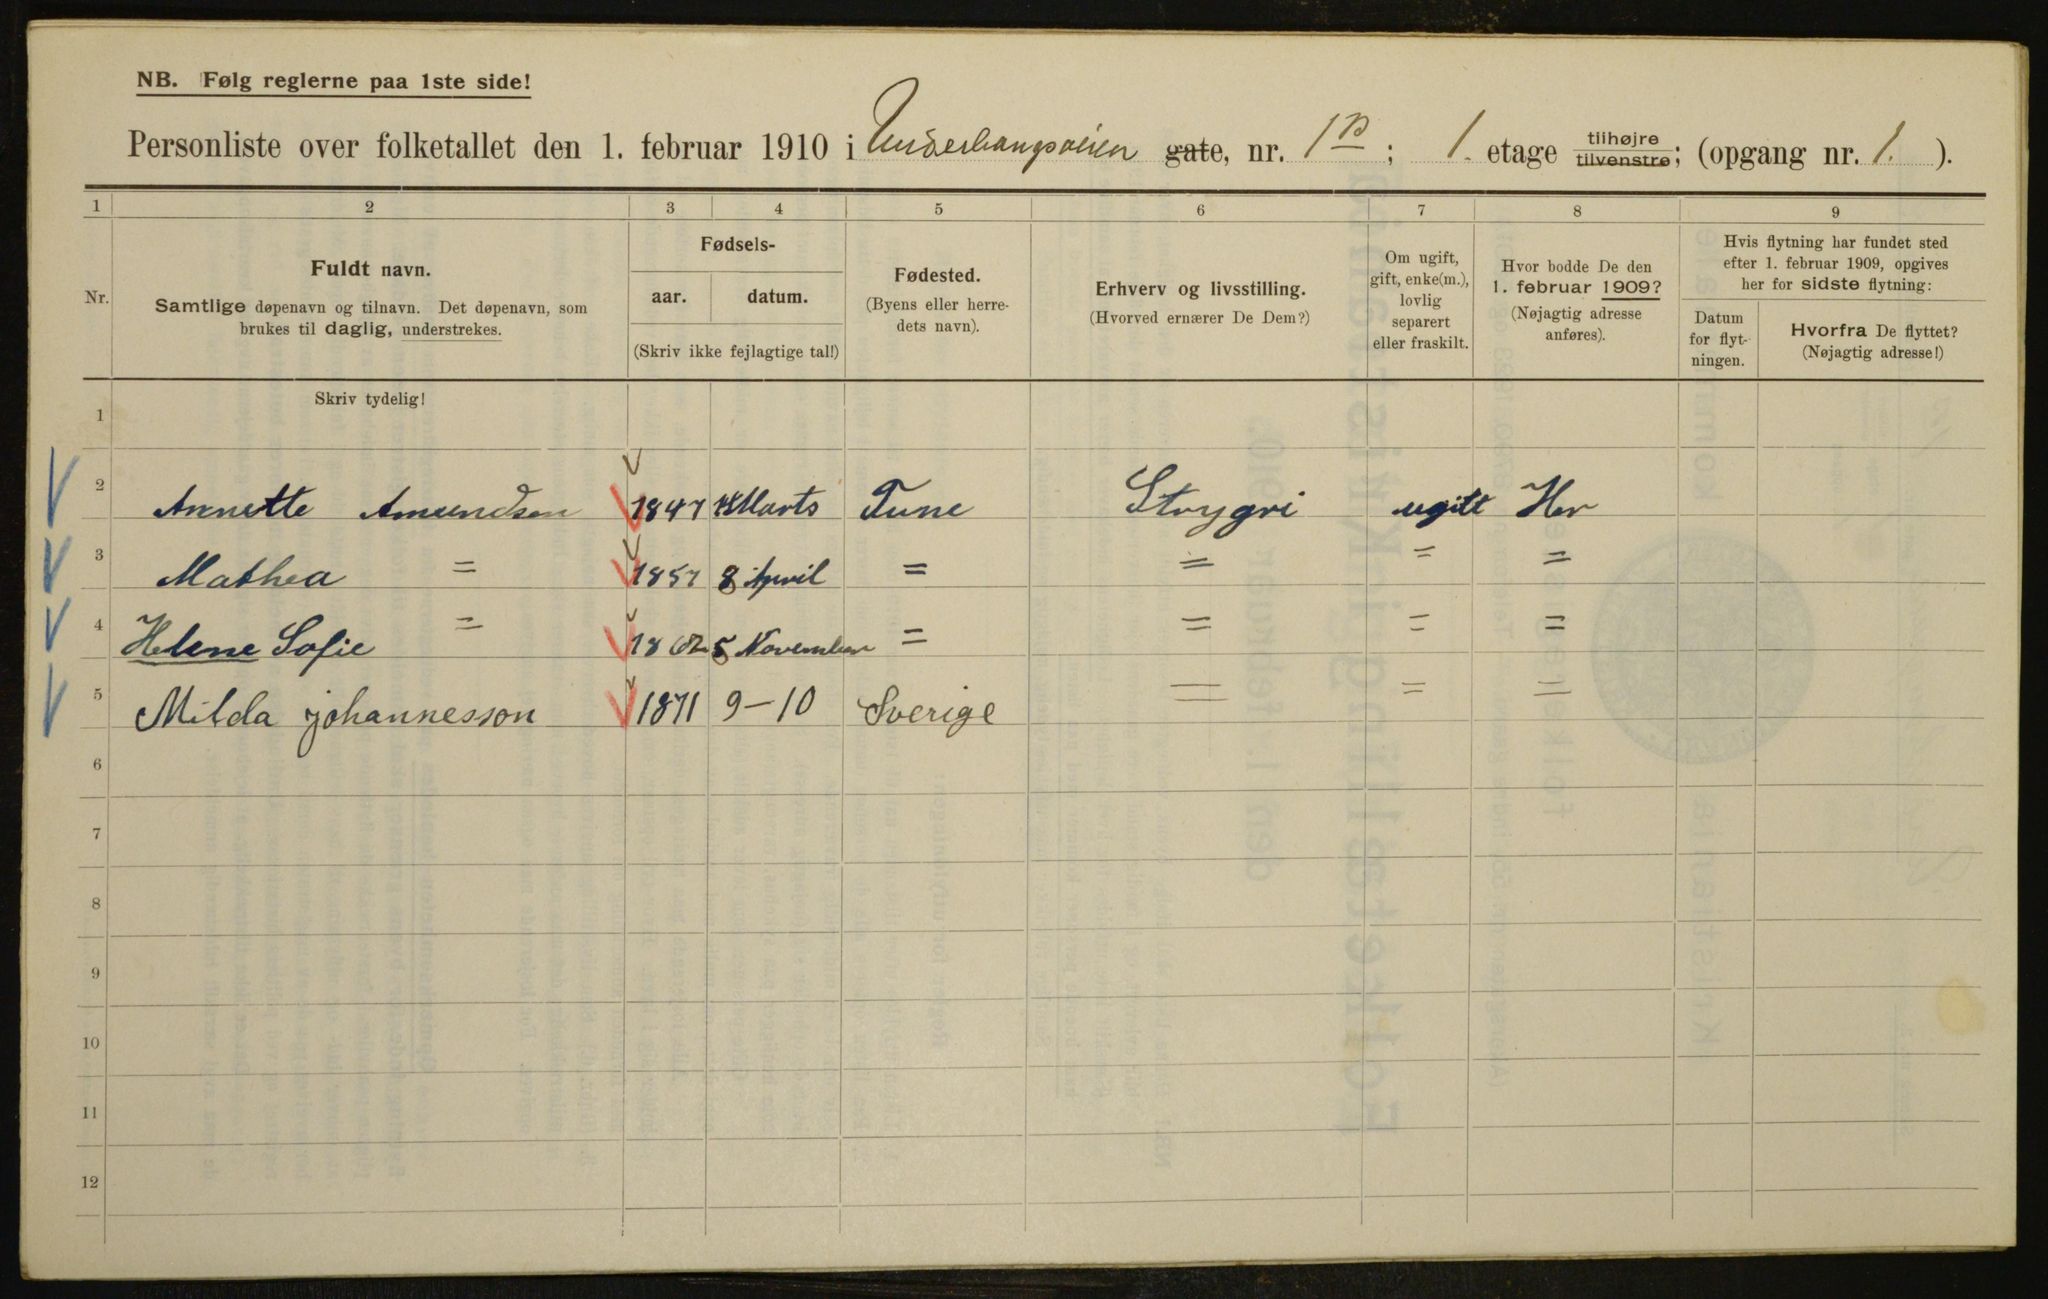 NB. Følg reglerne paa 1ste side!
Personliste over folketallet den 1. februar 1910 i Underhaugsveien gate, nr. 1B ; 1. etage tilhøjre tilvenstre; (opgang nr. 1. ).
1 2 3 4 5 6 7 8 9
Nr.
Fuldt navn.
Samtlige døpenavn og tilnavn. Det døpenavn, som
brukes til daglig, understrekes.
Fødsels-
aar. datum.
(Skriv ikke fejlagtige tal!)
Fødested.
(Byens eller herre-
dets navn).
Erhverv og livsstilling.
(Hvorved ernærer De Dem?)
Om ugift,
gift, enke(m.),
lovlig
separert
eller fraskilt.
Hvor bodde De den
1. februar 1909?
(Nøjagtig adresse
anføres).
Hvis flytning har fundet sted
efter 1. februar 1909, opgives
her for sidste flytning:
Datum
for flyt-
ningen.
Hvorfra De flyttet?
(Nøjagtig adresse!)
Skriv tydelig!
1
2 Annette Amundsen 1847 Marts Tune Strygri ugift Her
3 Mathea = 1857 8 April = = = =
4 Helene Sofie = 1862 5 November = = = =
5 Milda johannesson 1871 9-10 Sverige = = =
6
7
8
9
10
11
12